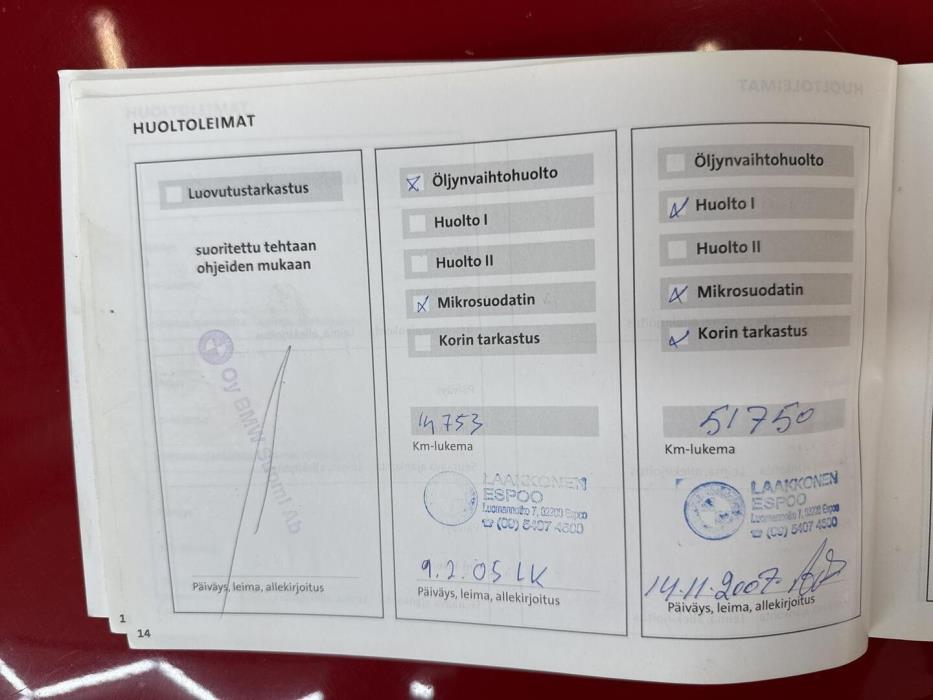 HUOLTOLEIMAT
Luovutustarkastus
suoritettu tehtaan
ohjeiden mukaan
Oy BMW Suomi Ab
Päiväys, leima, allekirjoitus
Öljynvaihtohuolto
Huolto I
Huolto II
Mikrosuodatin
Korin tarkastus
14753
Km-lukema
LAAKKONEN
ESPOO
Luomannotko 7, 02200 Espoo
☎ (09) 5407 4800
9.2.05 LK
Päiväys, leima, allekirjoitus
Öljynvaihtohuolto
Huolto I
Huolto II
Mikrosuodatin
Korin tarkastus
51750
Km-lukema
LAAKKONEN
ESPOO
Luomannotko 7, 02200 Espoo
☎ (09) 5407 4800
14.11.2007
Päiväys, leima, allekirjoitus
1
14